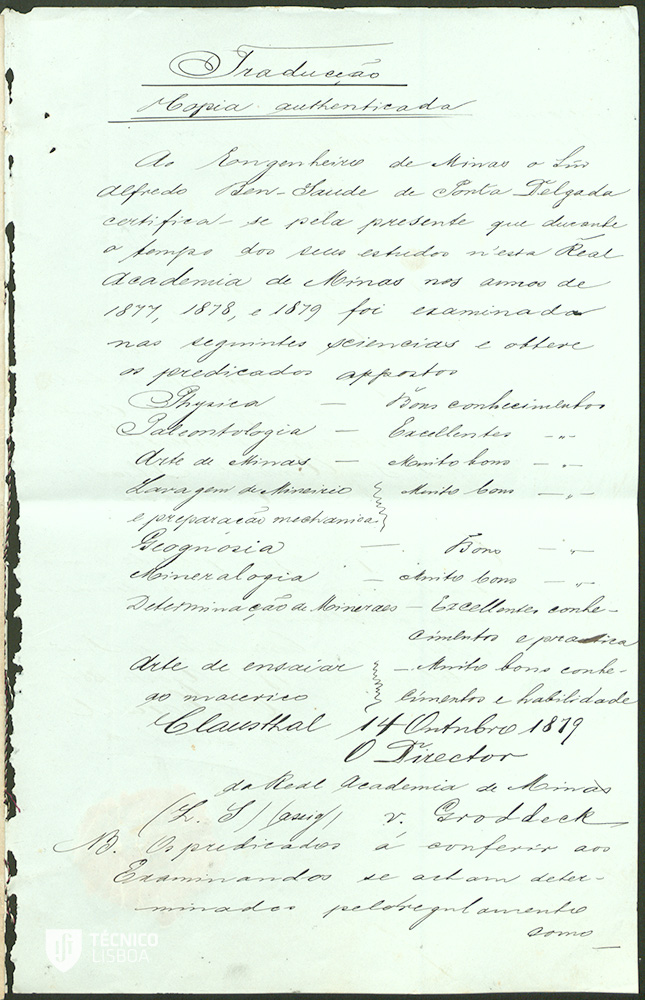 Traducção
Copia authenticada
Ao Engenheiro de Minas o Snr
Alfredo Ben-Saude de Ponta Delgada
certifica-se pela presente que durante
o tempo dos seus estudos n'esta Real
Academia de Minas nos annos de
1877, 1878, e 1879 foi examinado
nas seguintes sciencias e obteve
os predicados appostos
Physica — Bons conhecimentos
Paleontologia — Excellentes — „ —
Arte de Minas — Muito bons — „ —
Lavagem de Mineiro } Muito bons — „ —
e preparação mechanica
Geognosia — Bons — „ —
Mineralogia — Muito bons — „ —
Determinação de Mineraes — Excellentes conhe-
cimentos e practica
Arte de ensaiar } — Muito bons conhe-
ao maçarico cimentos e habilidade
Clausthal 14 Outubro 1879
O Director
da Real Academia de Minas
(L. S) (assig) v. Groddeck
NB. Os predicados á conferir aos
Examinandos se acham deter-
minados pelo regulamento
como
TÉCNICO
LISBOA